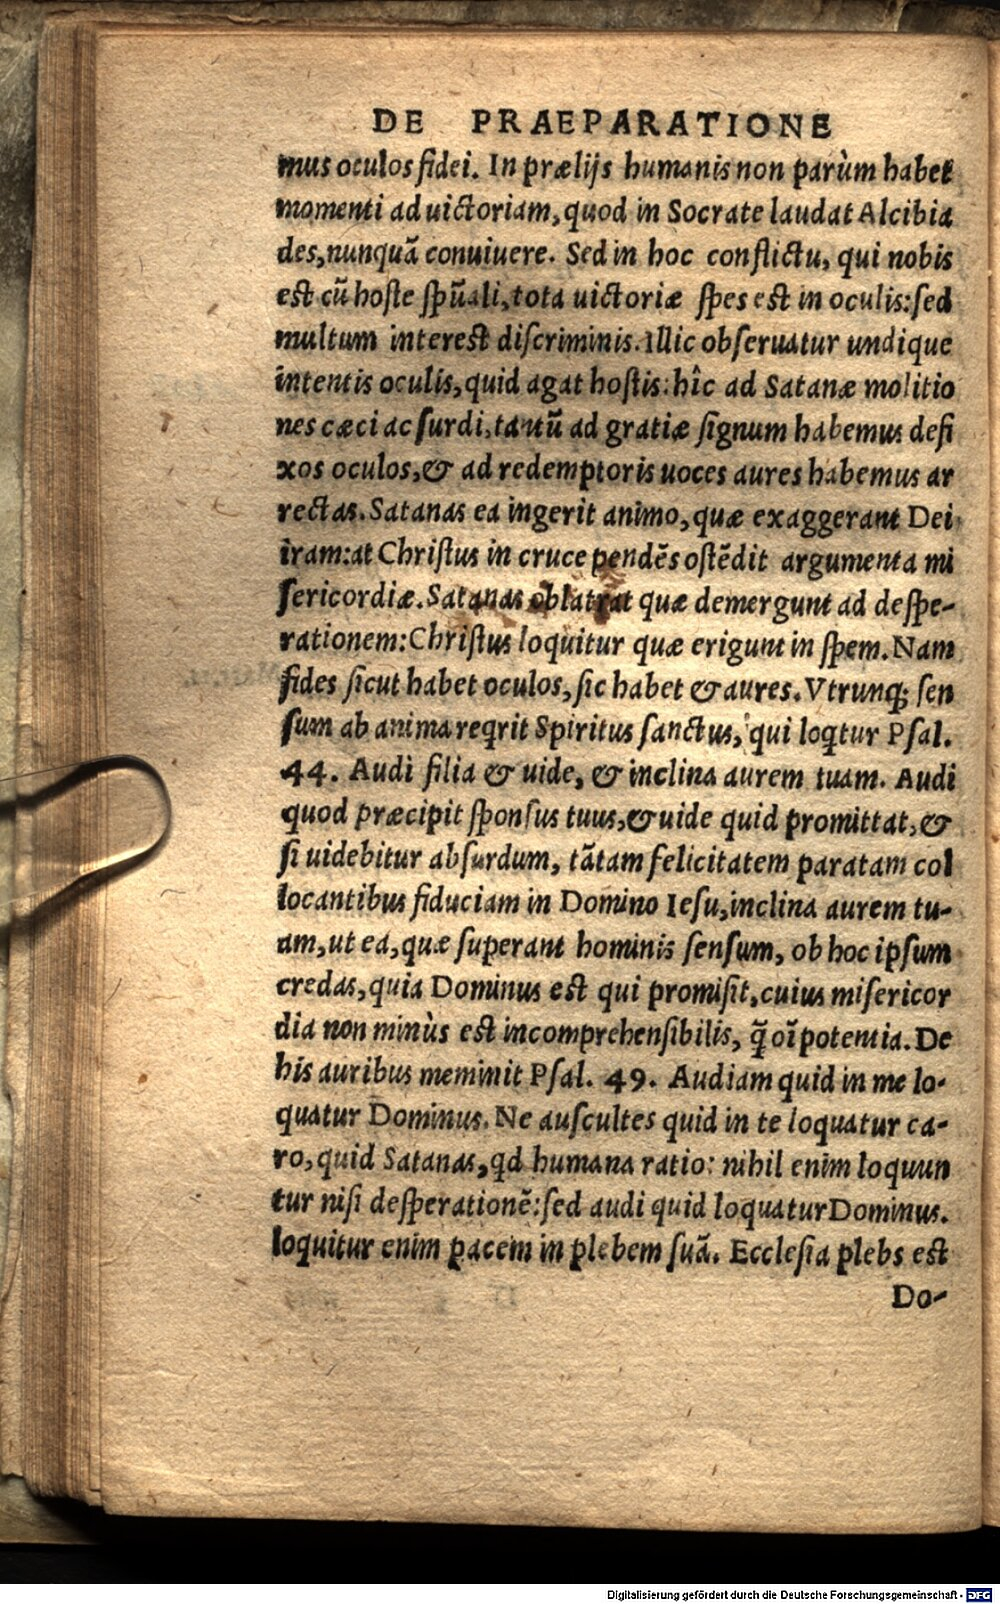 DE PRAEPARATIONE
mus oculos fidei. In prælijs humanis non parùm habet
momenti ad uictoriam, quod in Socrate laudat Alcibia
des, nunquã conuiuere. Sed in hoc conflictu, qui nobis
est cũ hoste spũali, tota uictoriæ spes est in oculis: sed
multum interest discriminis. Illic obseruatur undique
intentis oculis, quid agat hostis: hîc ad Satanæ molitio
nes cæci ac surdi, tantũ ad gratiæ signum habemus defi
xos oculos, & ad redemptoris uoces aures habemus ar
rectas. Satanas ea ingerit animo, quæ exaggerant Dei
iram: at Christus in cruce pendẽs ostẽdit argumenta mi
sericordiæ. Satanas oblatrat quæ demergunt ad despe-
rationem: Christus loquitur quæ erigunt in spem. Nam
fides sicut habet oculos, sic habet & aures. Vtrunq; sen
sum ab anima reqrit Spiritus sanctus, qui loqtur Psal.
44. Audi filia & uide, & inclina aurem tuam. Audi
quod præcipit sponsus tuus, & uide quid promittat, &
si uidebitur absurdum, tãtam felicitatem paratam col
locantibus fiduciam in Domino Iesu, inclina aurem tu-
am, ut ea, quæ superant hominis sensum, ob hoc ipsum
credas, quia Dominus est qui promisit, cuius misericor
dia non minùs est incomprehensibilis, q̃ oĩpotentia. De
his auribus meminit Psal. 49. Audiam quid in me lo-
quatur Dominus. Ne auscultes quid in te loquatur ca-
ro, quid Satanas, qd humana ratio: nihil enim loquun
tur nisi desperationẽ: sed audi quid loquatur Dominus.
loquitur enim pacem in plebem suã. Ecclesia plebs est
Do-
Digitalisierung gefördert durch die Deutsche Forschungsgemeinschaft - DFG